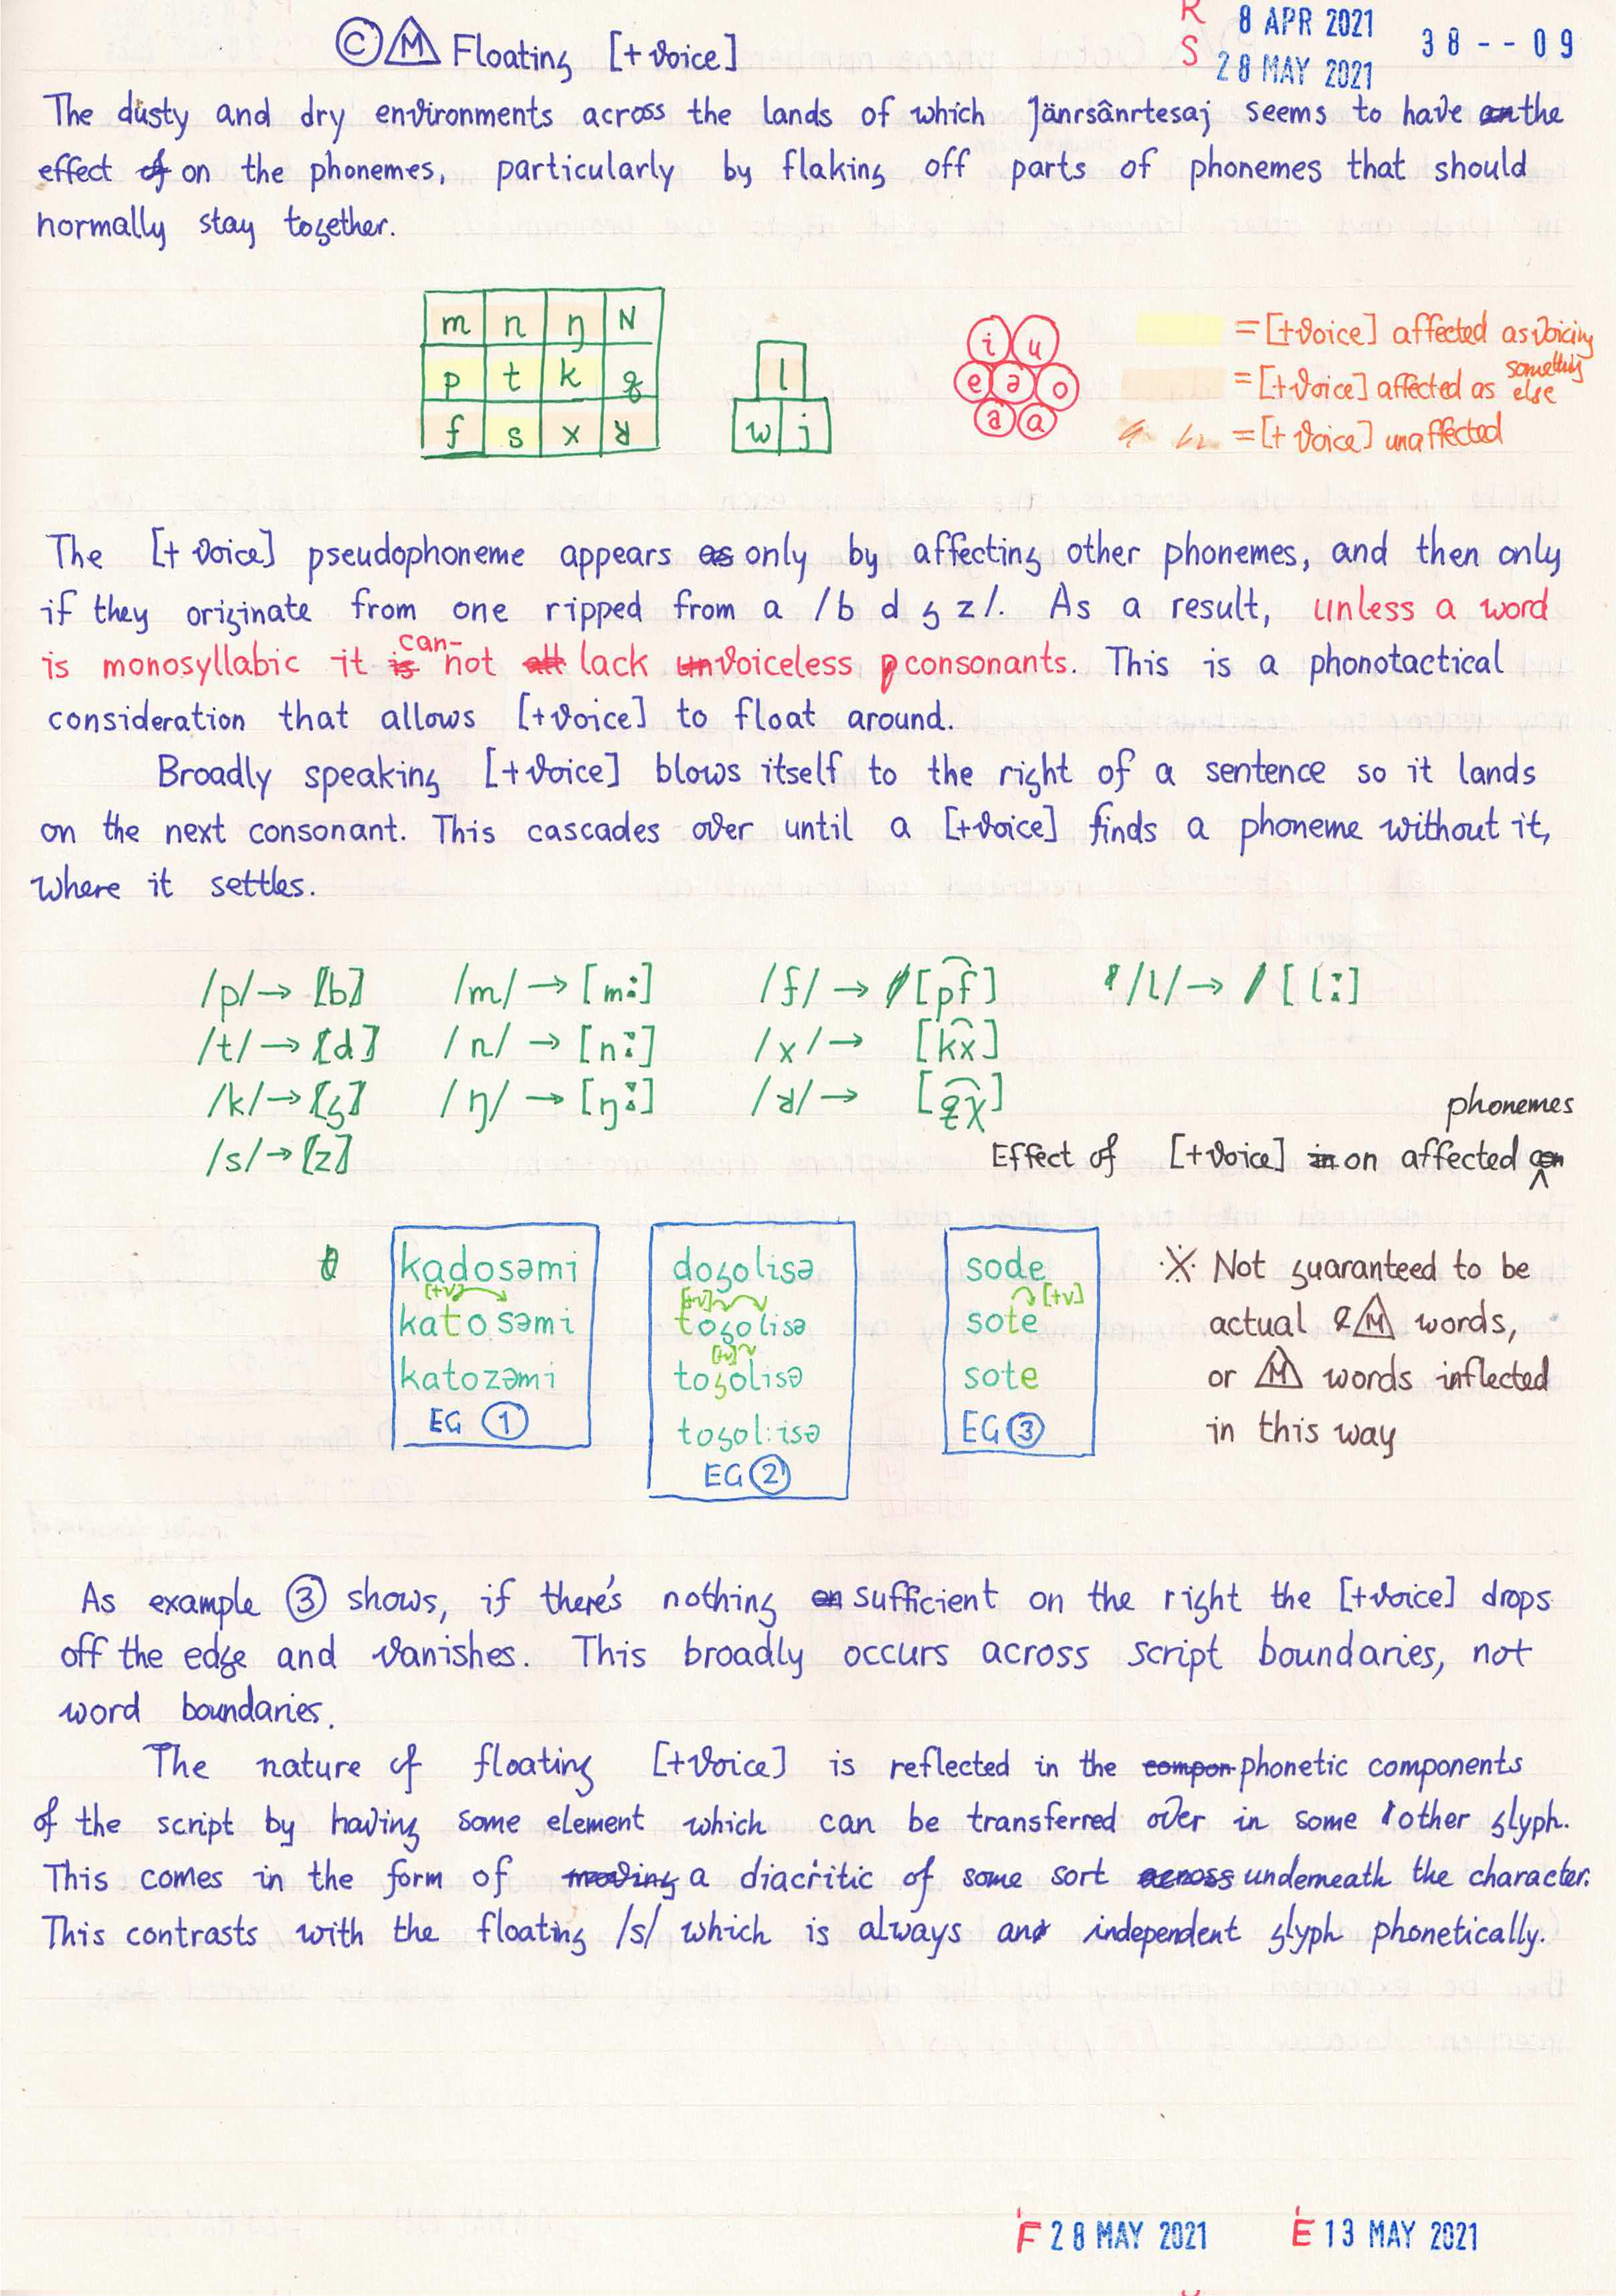 Ⓒ M Floating [+voice]
R 8 APR 2021
S 28 MAY 2021
38--09
The dusty and dry environments across the lands of which Jänrsânrtesaj seems to have an the
effect of on the phonemes, particularly by flaking off parts of phonemes that should
normally stay together.
m n ŋ N
p t k q
f s x ʁ
l
w j
i u
e ə o
a ɑ
= [+voice] affected as voicing
= [+voice] affected as something else
= [+voice] unaffected
The [+voice] pseudophoneme appears as only by affecting other phonemes, and then only
if they originate from one ripped from a /b d g z/. As a result, unless a word
is monosyllabic it is can-not all lack un voiceless p consonants. This is a phonotactical
consideration that allows [+voice] to float around.
Broadly speaking [+voice] blows itself to the right of a sentence so it lands
on the next consonant. This cascades over until a [+voice] finds a phoneme without it,
where it settles.
/p/→ [b] /m/→ [m:] /f/→ [p͡f] /l/→ [l:]
/t/→ [d] /n/→ [n:] /x/→ [k͡x]
/k/→ [g] /ŋ/→ [ŋ:] /ʁ/→ [q͡χ]
/s/→ [z]
Effect of [+voice] in on affected phonemes
kadosəmi
[+v]
katosəmi
katozəmi
EG ①
dogolisə
[+v]
togolisə
[+v]
togolisə
togol:isə
EG ②
sode
[+v]
sote
sote
EG ③
※ Not guaranteed to be
actual M words,
or M words inflected
in this way
As example ③ shows, if there's nothing on sufficient on the right the [+voice] drops
off the edge and vanishes. This broadly occurs across script boundaries, not
word boundaries.
The nature of floating [+voice] is reflected in the compon phonetic components
of the script by having some element which can be transferred over in some other glyph.
This comes in the form of moving a diacritic of some sort across underneath the character.
This contrasts with the floating /s/ which is always an independent glyph phonetically.
F 28 MAY 2021
E 13 MAY 2021